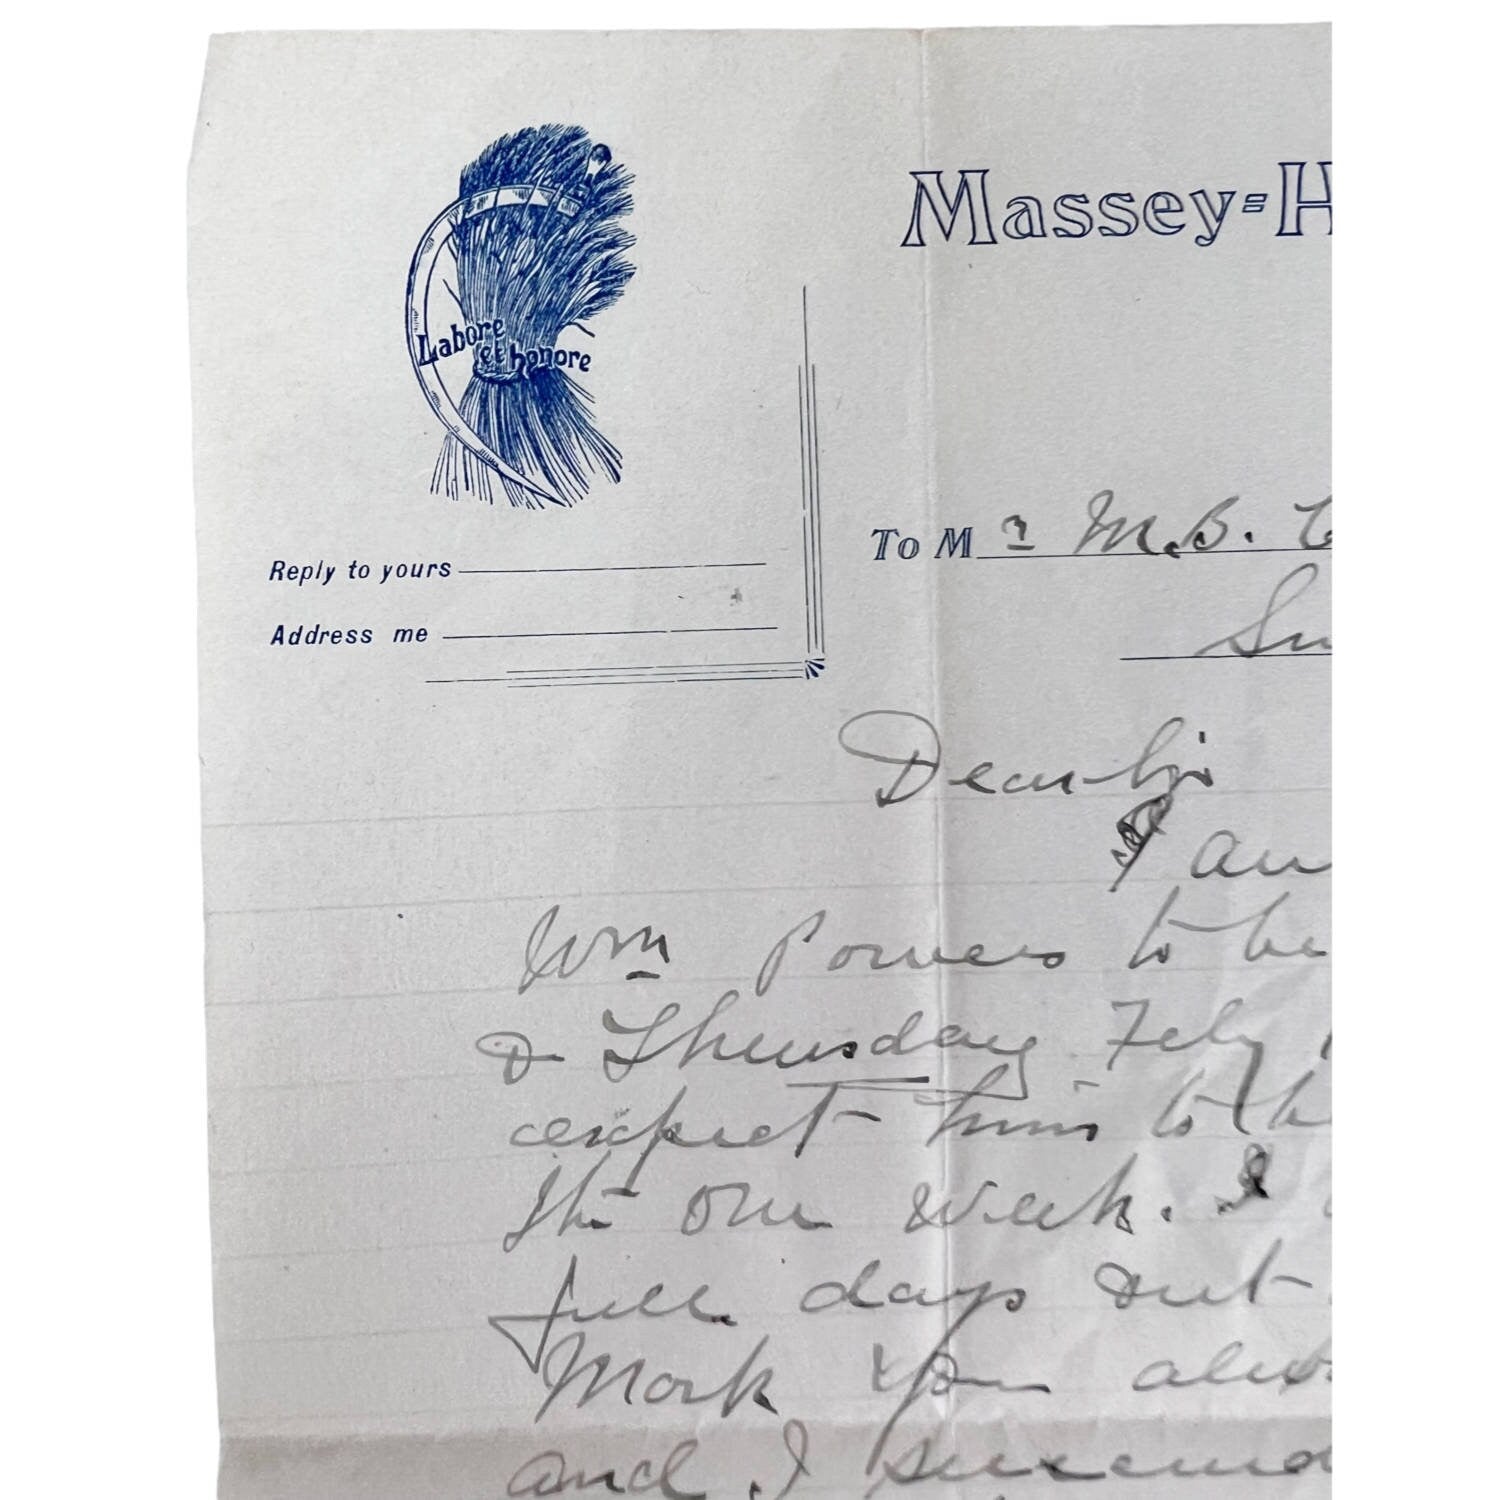 Massey=H
Labore
et honore
To Mr M.B.
Reply to yours
Address me
Dear Sir
I am
Wm Powers to be
& Thursday Feby
expect him to
the one week. I
full days out
Mark you
and I